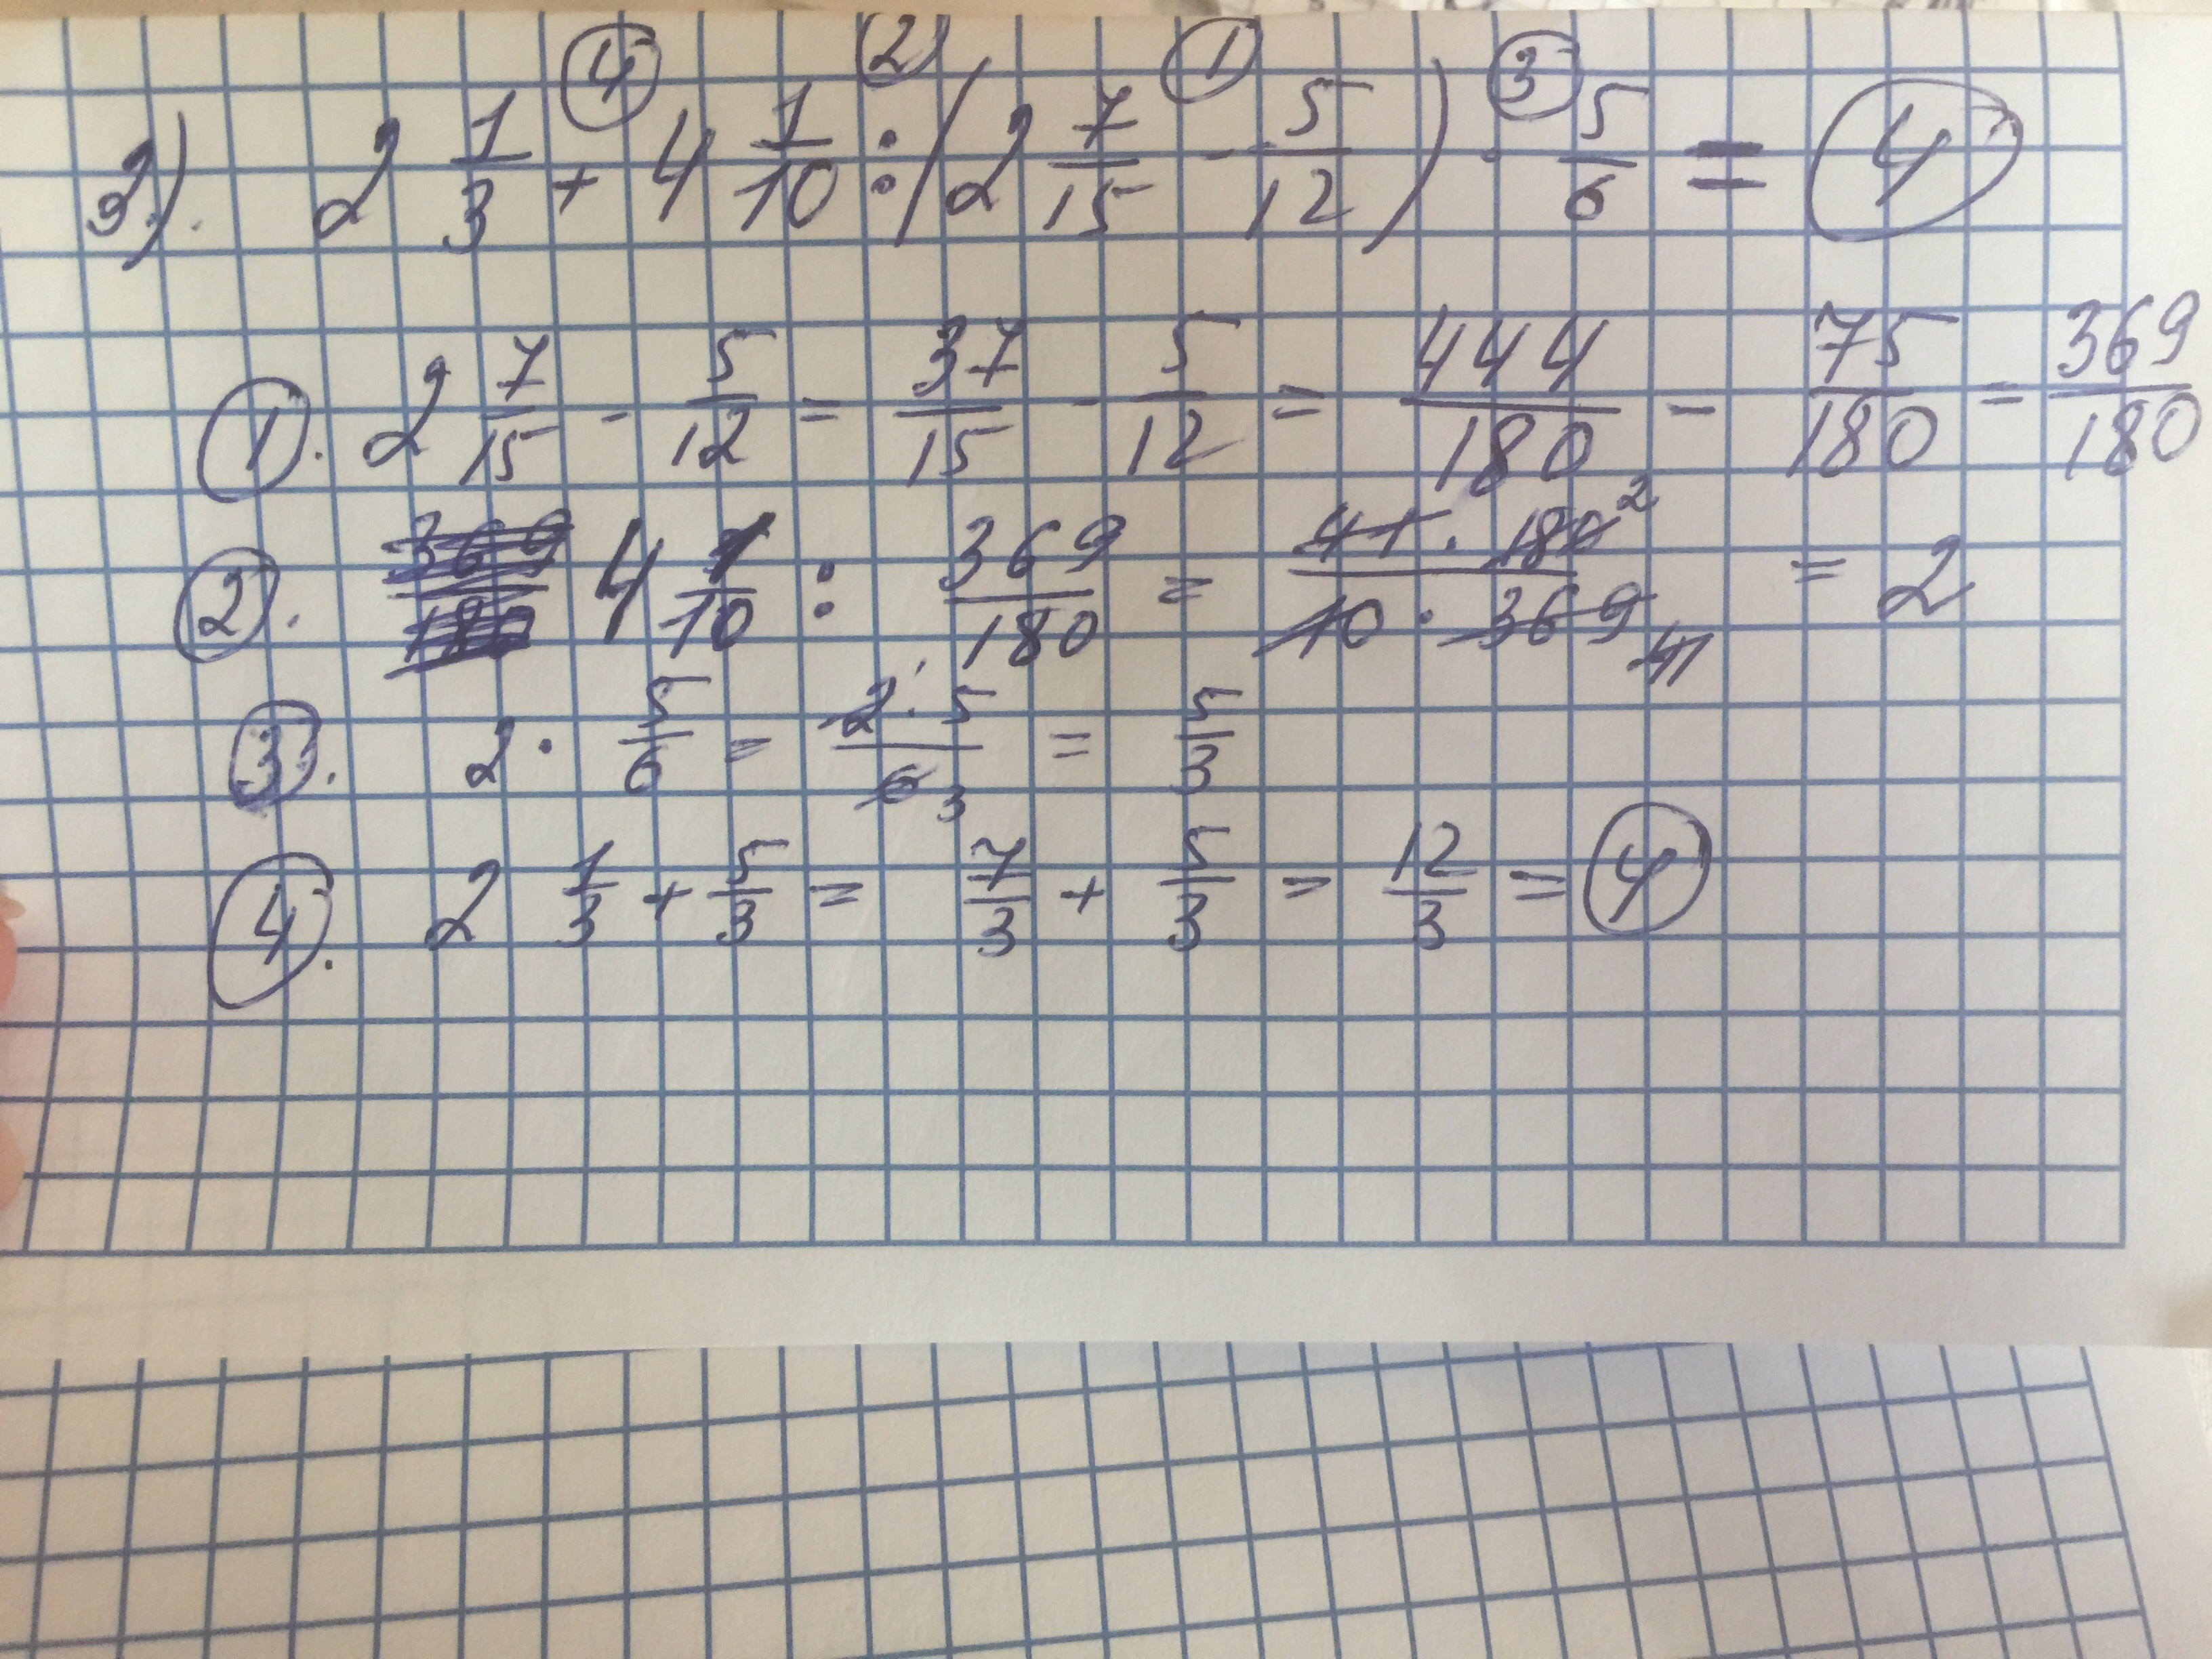 ④ ② ① ③
3). 2 1/3 + 4 1/10 : (2 7/15 - 5/12) · 5/6 = ④
①. 2 7/15 - 5/12 = 37/15 - 5/12 = 444/180 - 75/180 = 369/180
②. 4 1/10 : 369/180 = 41 · 180 2 / 10 · 369 41 = 2
③. 2 · 5/6 = 2 · 5 / 6 3 = 5/3
④. 2 1/3 + 5/3 = 7/3 + 5/3 = 12/3 = ④